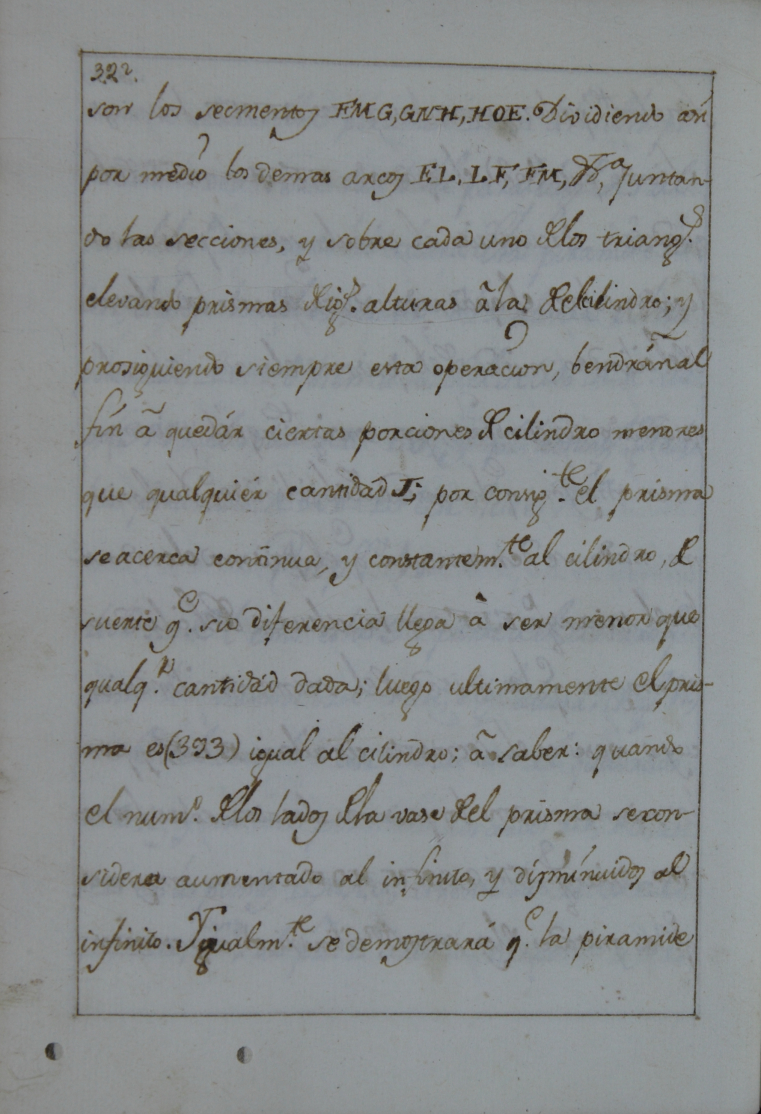 322.
son los secmentos FMG, GNH, HOE. Dividiendo asi
por medio los demas arcos EL, LF, FM, &.ª, Juntan-
do las secciones, y sobre cada uno de los triang.s
elevando prismas de ig.s alturas â la del cilindro; y
prosiguiendo siempre esta operacion, bendrán al
fin â quedár ciertas porciones de cilindro menores
que qualquiér cantidád I; por consig.te el prisma
se acerca continua, y constantem.te al cilindro, de
suerte q.e su diferencia llega â ser menor que
qualq.r cantidád dada; luego ultimamente el pris-
ma es (393) igual al cilindro; â saber: quando
el num.o de los lados de la vase del prisma se con-
sidera aumentado al infinito, y disminuidos al
infinito. Ygualm.te se demostrará q.e la piramide